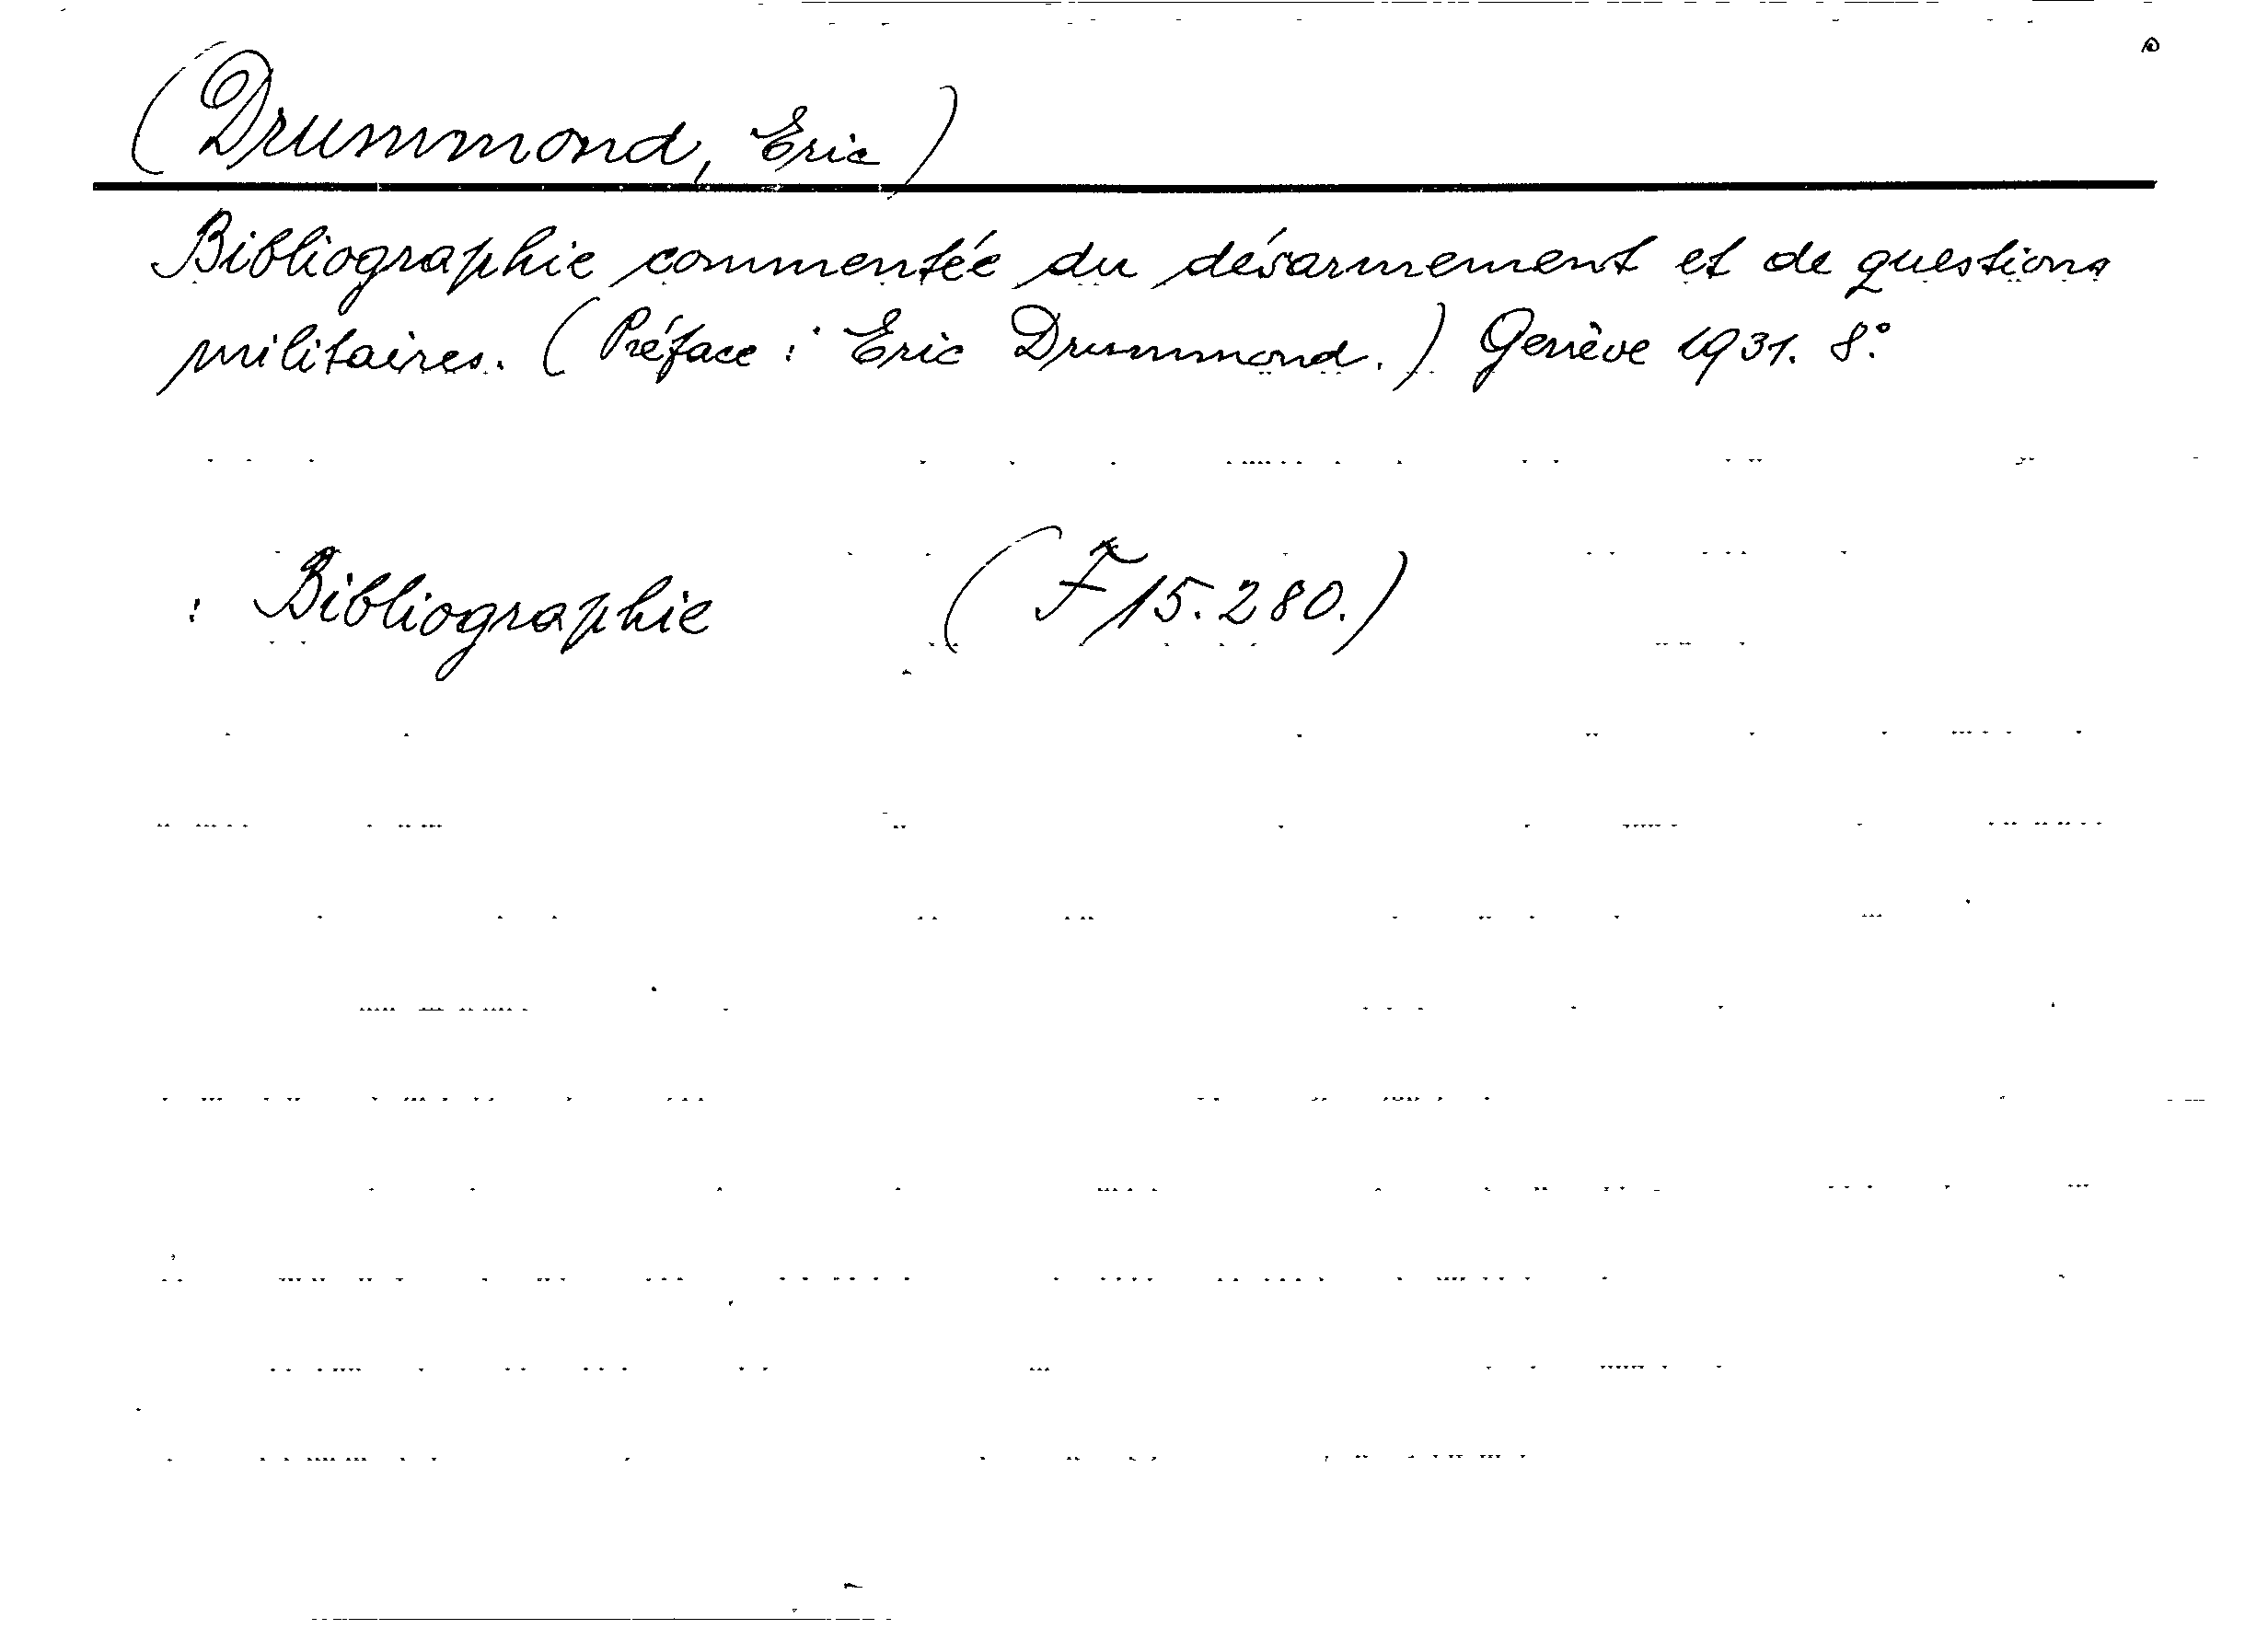 (Drummond, Eric)
Bibliographie commentée du désarmement et de questions
militaires. (Préface: Eric Drummond.) Genève 1931. 8°.
: Bibliographie (F 15.280.)